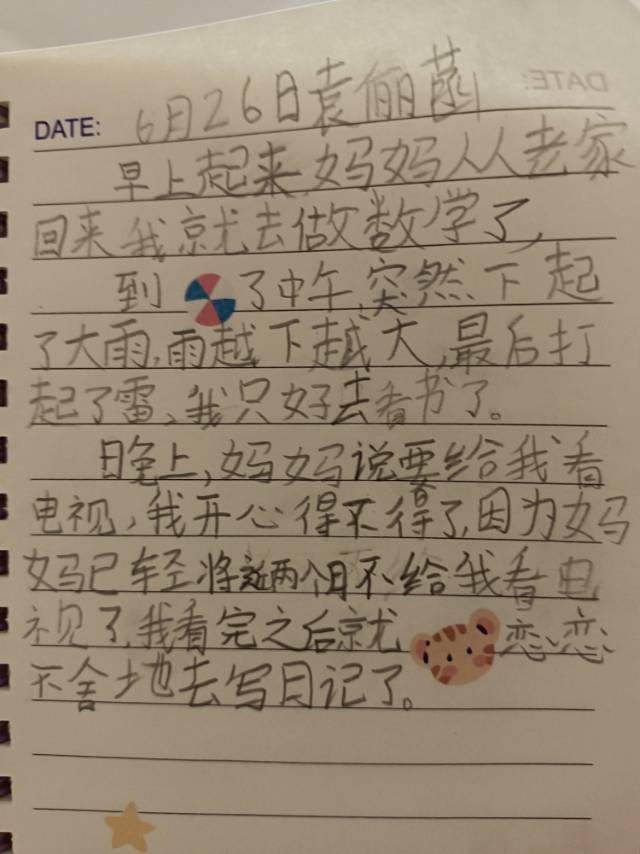 DATE:
DATE: 6月26日袁俪菡
早上起来,妈妈人人老家
回来我就去做数学了,
到了中午,突然下起
了大雨,雨越下越大,最后打
起了雷、我只好去看书了。
晚上,妈妈说要给我看
电视,我开心得不得了,因为妈
妈已轻将近两个日不给我看电
视了,我看完之后就恋恋
不舍地去写日记了。